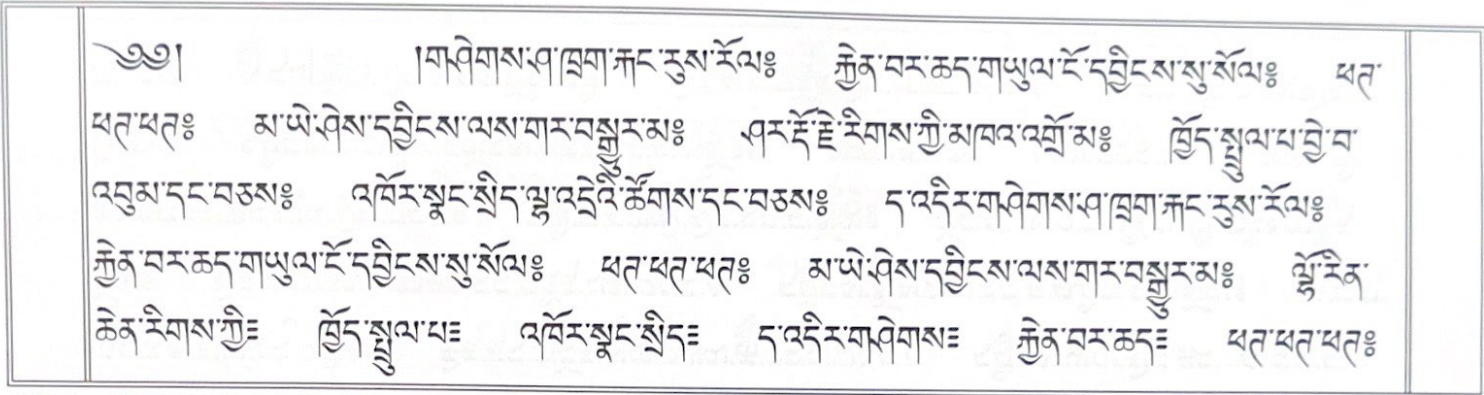 ༄༅། །གཤེགས་ཤ་ཁྲག་རྐང་རུས་རོལ༔ རྐྱེན་བར་ཆད་གཡུལ་ངོ་དབྱིངས་སུ་སོལ༔ ཕཊ་
ཕཊ་ཕཊ༔ མ་ཡེ་ཤེས་དབྱིངས་ལས་གར་བསྒྱུར་མ༔ ཤར་རྡོ་རྗེ་རིགས་ཀྱི་མཁའ་འགྲོ་མ༔ ཁྱོད་སྤྲུལ་པ་བྱེ་བ་
འབུམ་དང་བཅས༔ འཁོར་སྣང་སྲིད་ལྷ་འདྲེའི་ཚོགས་དང་བཅས༔ ད་འདིར་གཤེགས་ཤ་ཁྲག་རྐང་རུས་རོལ༔
རྐྱེན་བར་ཆད་གཡུལ་ངོ་དབྱིངས་སུ་སོལ༔ ཕཊ་ཕཊ་ཕཊ༔ མ་ཡེ་ཤེས་དབྱིངས་ལས་གར་བསྒྱུར་མ༔ ལྷོ་རིན་
ཆེན་རིགས་ཀྱི༔ ཁྱོད་སྤྲུལ་པ༔ འཁོར་སྣང་སྲིད༔ ད་འདིར་གཤེགས༔ རྐྱེན་བར་ཆད༔ ཕཊ་ཕཊ་ཕཊ༔